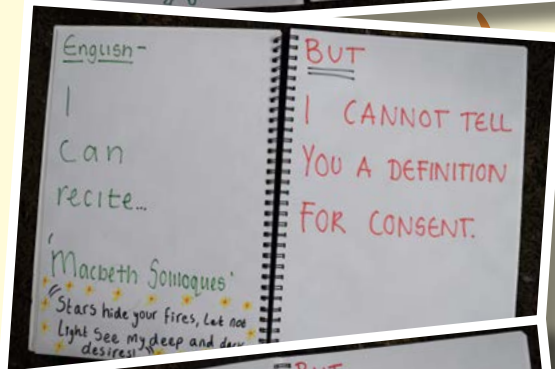 English-
I
can
recite...
'Macbeth Soliloques'
"Stars hide your fires, Let not
Light See my deep and dark
desires!"
BUT
I CANNOT TELL
YOU A DEFINITION
FOR CONSENT.
BUT